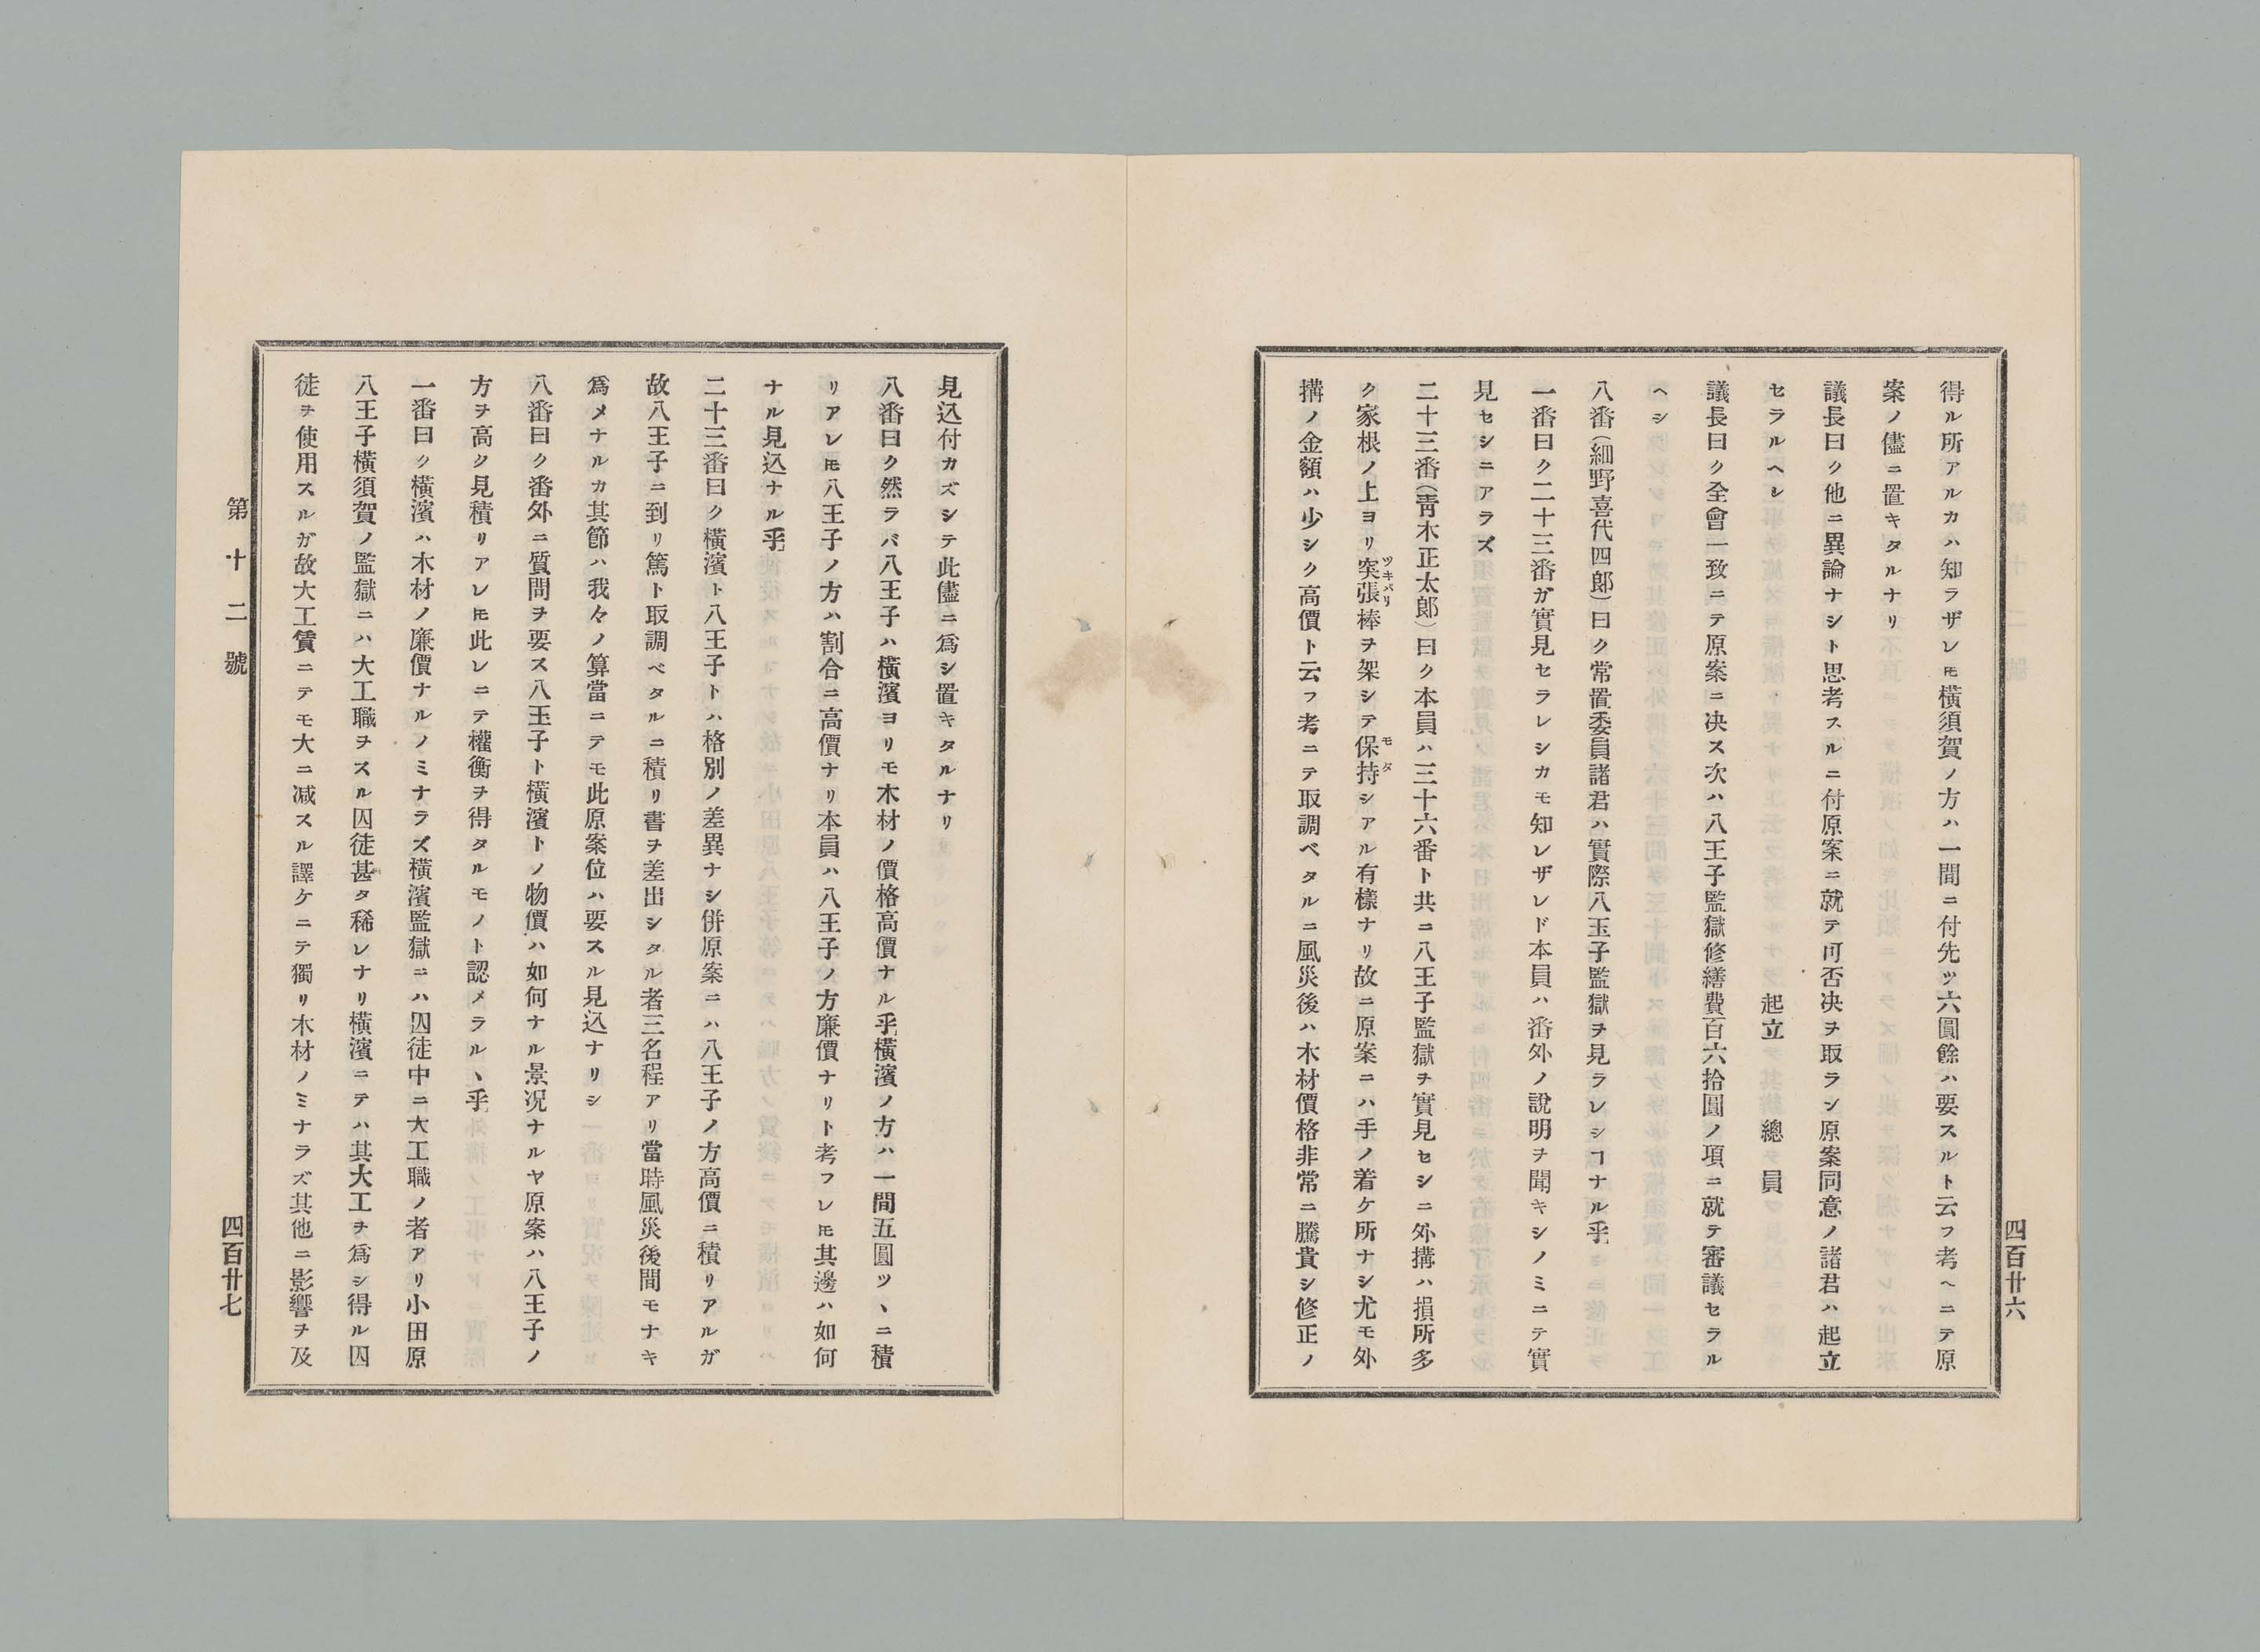 得ル所アルカハ知ラザレㇳモ横須賀ノ方ハ一間ニ付先ツ六圓餘ハ要スルト云フ考ヘニテ原
案ノ儘ニ置キタルナリ
議長曰ク他ニ異論ナシト思考スルニ付原案ニ就テ可否决ヲ取ラン原案同意ノ諸君ハ起立
セラルヘシ　起立　總員
議長曰ク全會一致ニテ原案ニ决ス次ハ八王子監獄修繕費百六拾圓ノ項ニ就テ審議セラル
ヘシ
八番（細野喜代四郎）曰ク常置委員諸君ハ實際八王子監獄ヲ見ラレシヿナル乎
一番曰ク二十三番ガ實見セラレシカモ知レザレド本員ハ番外ノ說明ヲ聞キシノミニテ實
見セシニアラズ
二十三番（靑木正太郎）曰ク本員ハ三十六番ト共ニ八王子監獄ヲ實見セシニ外搆ハ損所多
ク家根ノ上ヨリ突張棒ヲ架シテ保持シアル有樣ナリ故ニ原案ニハ手ノ着ケ所ナシ尤モ外
搆ノ金額ハ少シク高價ト云フ考ニテ取調ベタルニ風災後ハ木材價格非常ニ騰貴シ修正ノ
四百廿六
見込付カズシテ此儘ニ爲シ置キタルナリ
八番曰ク然ラバ八王子ハ橫濱ヨリモ木材ノ價格高價ナル乎橫濱ノ方ハ一間五圓ツヽニ積
リアレㇳモ八王子ノ方ハ割合ニ高價ナリ本員ハ八王子ノ方廉價ナリト考フレㇳモ其邊ハ如何
ナル見込ナル乎
二十三番曰ク橫濱ト八王子トハ格別ノ差異ナシ併原案ニハ八王子ノ方高價ニ積リアルガ
故八王子ニ到リ篤ト取調ベタルニ積リ書ヲ差出シタル者三名程アリ當時風災後間モナキ
爲メナルカ其節ハ我々ノ算當ニテモ此原案位ハ要スル見込ナリシ
八番曰ク番外ニ質問ヲ要ス八王子ト橫濱トノ物價ハ如何ナル景况ナルヤ原案ハ八王子ノ
方ヲ高ク見積リアレㇳモ此レニテ權衡ヲ得タルモノト認メラルヽ乎
一番曰ク橫濱ハ木材ノ廉價ナルノミナラズ橫濱監獄ニハ囚徒中ニ大工職ノ者アリ小田原
八王子橫須賀ノ監獄ニハ大工職ヲスル囚徒甚タ稀レナリ橫濱ニテハ其大工ヲ爲シ得ル囚
徒ヲ使用スルガ故大工賃ニテモ大ニ减スル譯ケニテ獨リ木材ノミナラズ其他ニ影響ヲ及
第十二號
四百廿七